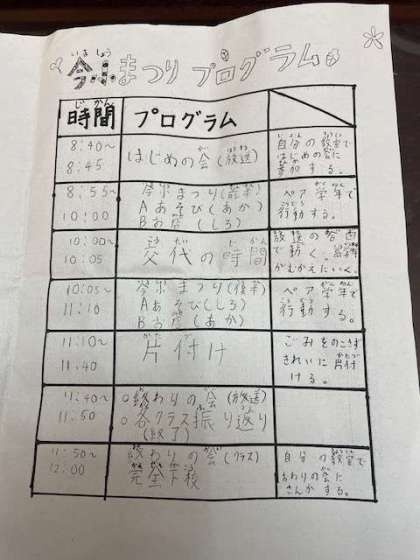 いましょう
今小まつり プログラム
じかん
時間
プログラム
8:40~
8:45
はじめの会(放送)
自分の教室で
はじめの会に
参加する。
8:55~
10:00
今小まつり(前半)
Aあそび(あか)
Bお店(しろ)
ペア学年で
行動する。
10:00~
10:05
交代の時間
放送の合図
で動く。
がむかえにいく。
10:05~
11:10
今小まつり(後半)
Aあそび(しろ)
Bお店(あか)
ペア学年で
行動する。
11:10~
11:40
片付け
ごみをのこさず
きれいに片付
ける。
11:40~
11:50
○終わりの会(放送)
○各クラス振り返り
(終了)
11:50~
12:00
終わりの会(クラス)
完全下校
自分の教室で
おわりの会に
さんかする。